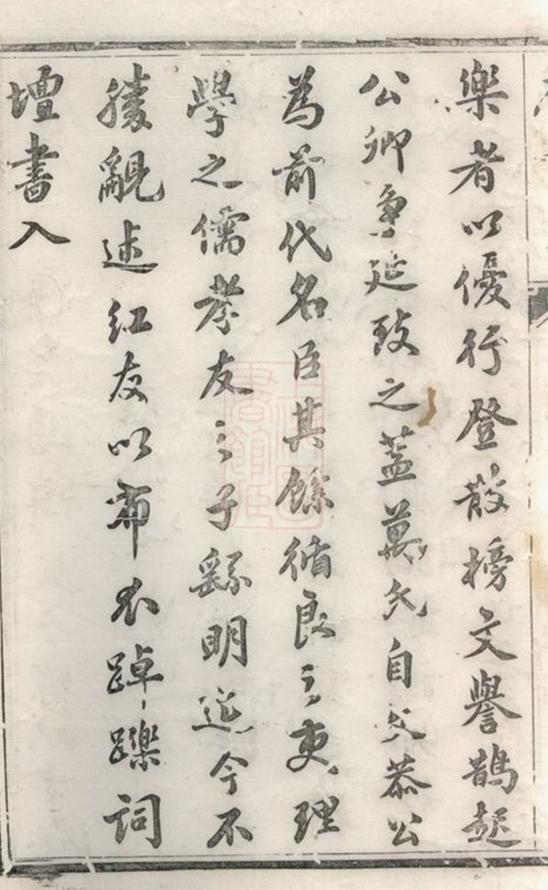 樂者以優行登散榜文譽鵲起
公卿爭延致之蓋萬氏自文恭公
為前代名臣其餘循良之吏理
學之儒孝友之子繇明迄今不
勝覼述紅友以布衣踔躒詞
壇書入